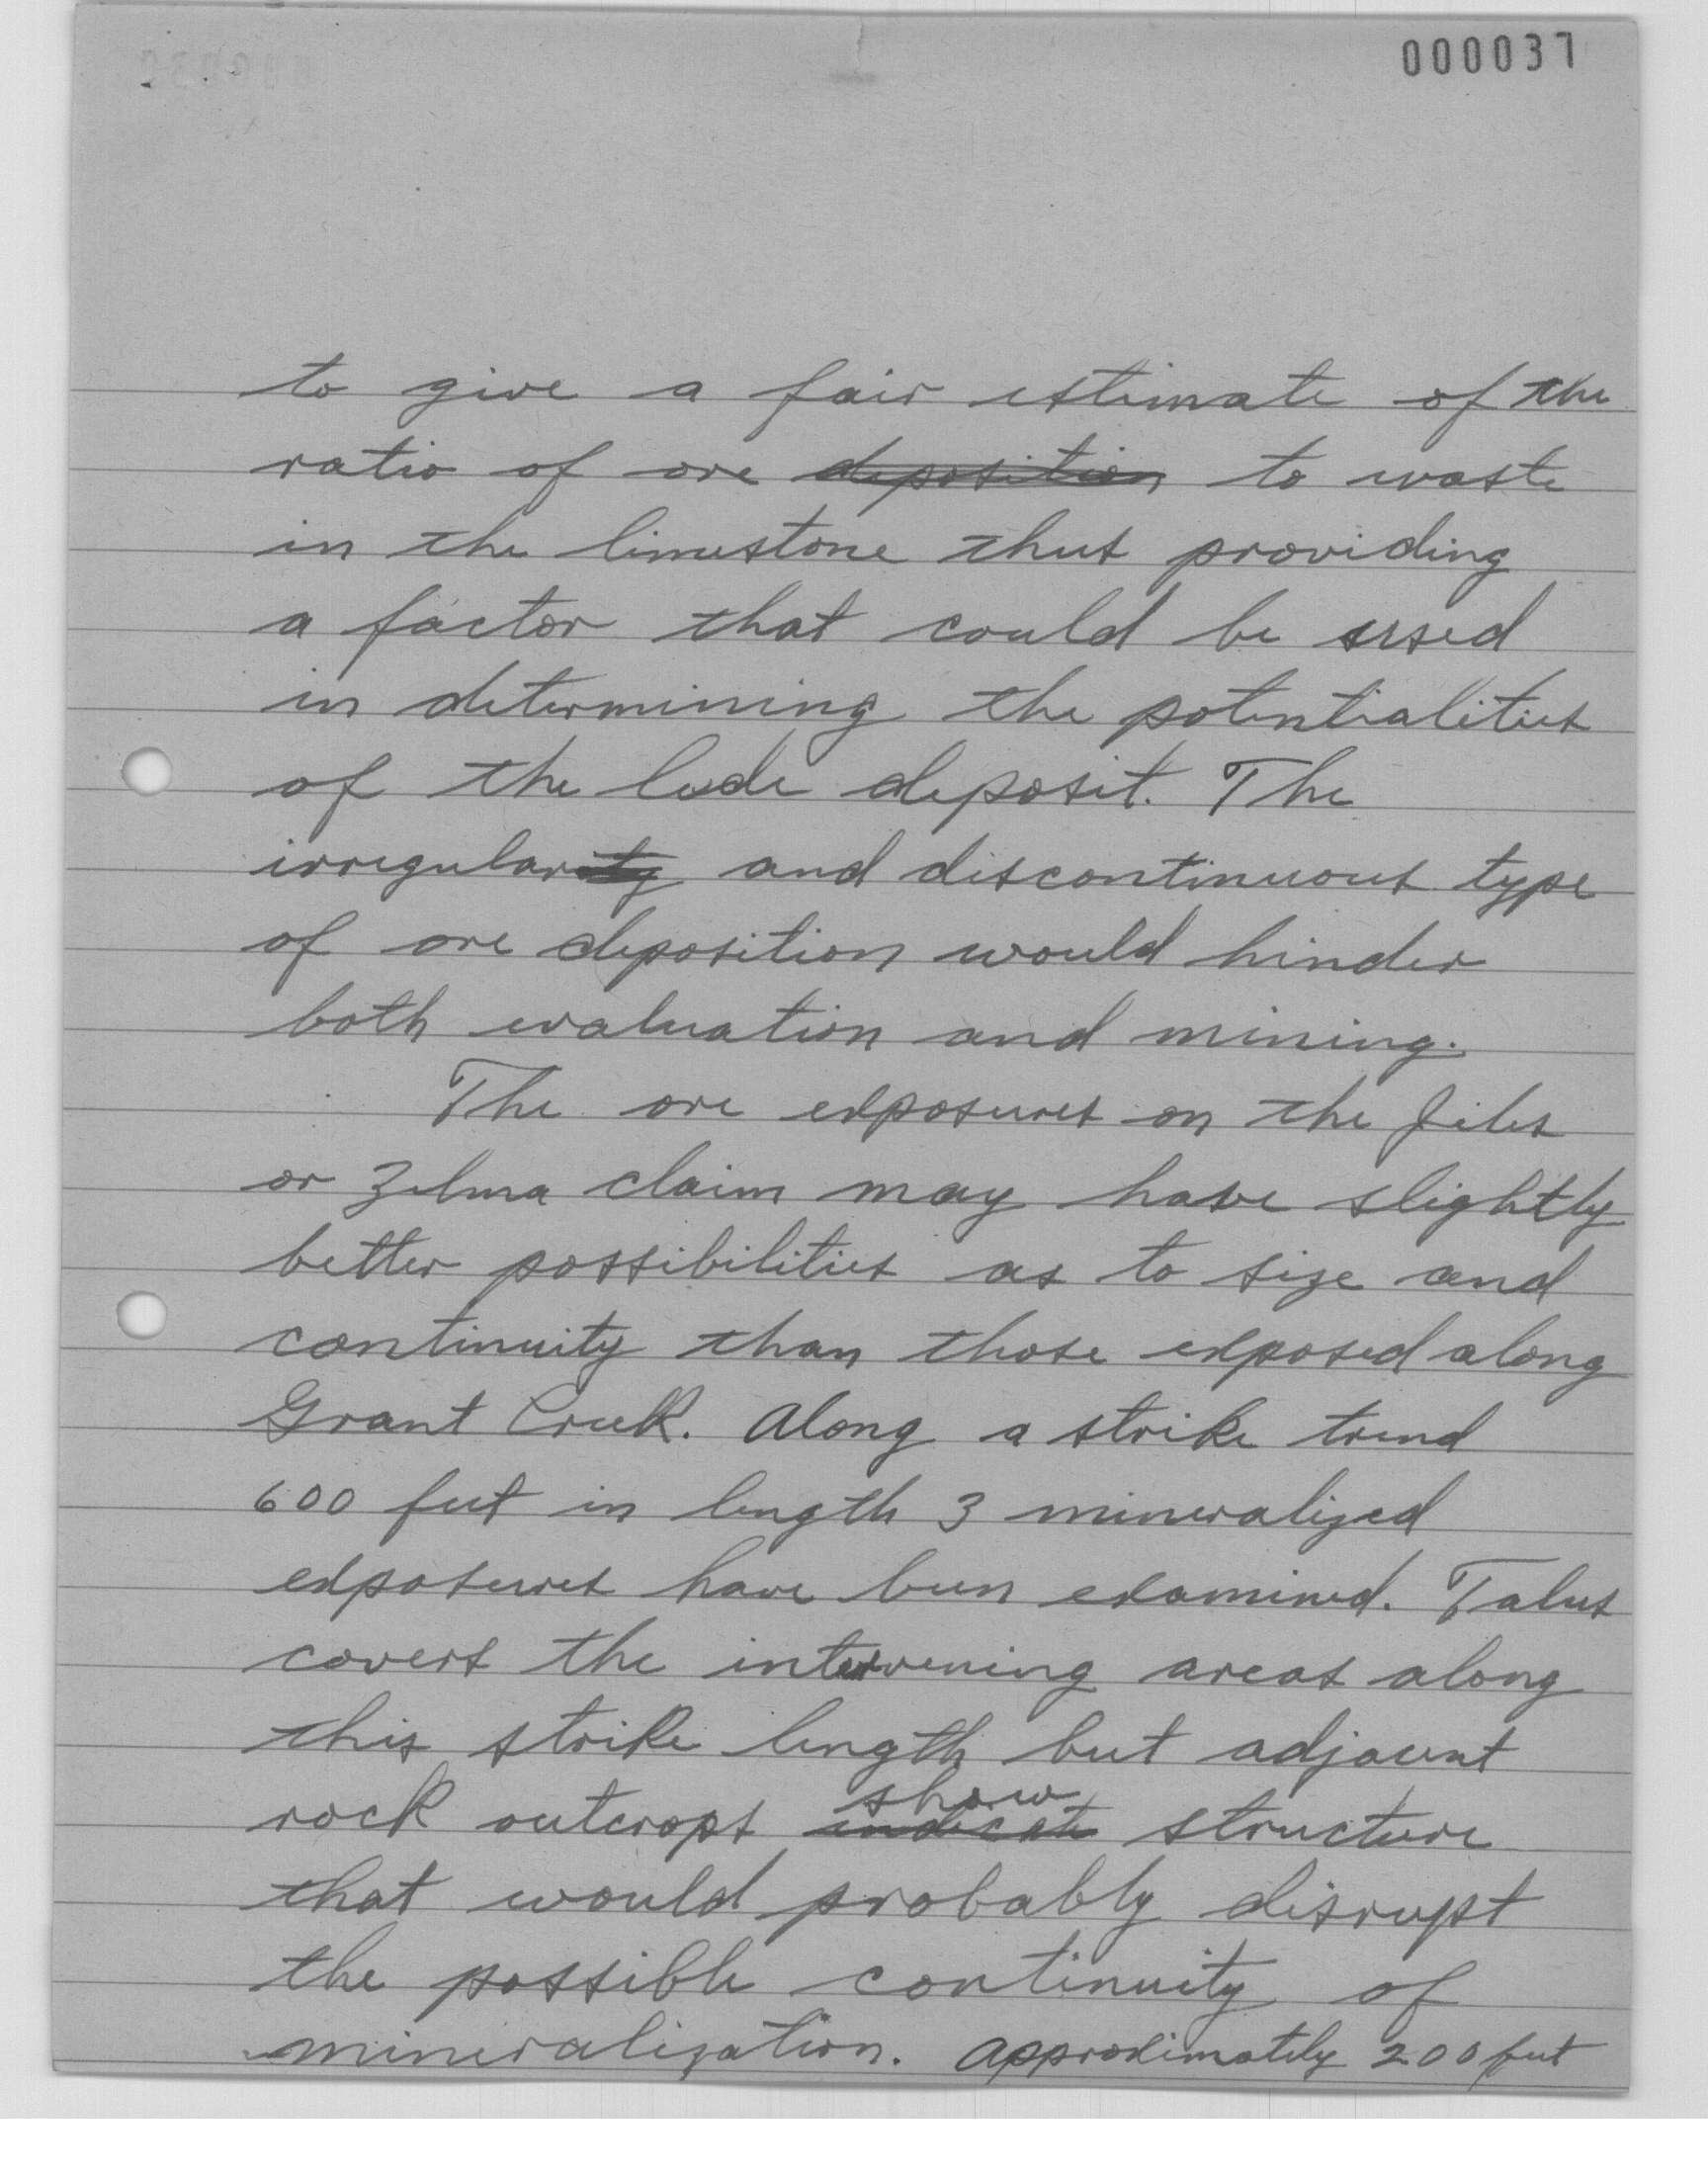 000037
to give a fair estimate of the
ratio of ore deposition to waste
in the limestone thus providing
a factor that could be used
in determining the potentialities
of the lode deposit. The
irregularity and discontinuous type
of ore deposition would hinder
both evaluation and mining.
The ore exposures on the Jiles
or Zelma claim may have slightly
better possibilities as to size and
continuity than those exposed along
Grant Creek. Along a strike trend
600 feet in length 3 mineralized
exposures have been examined. Talus
covers the intervening areas along
this strike length but adjacent
show
rock outcrops indicate structure
that would probably disrupt
the possible continuity of
mineralization. Approximately 200 feet